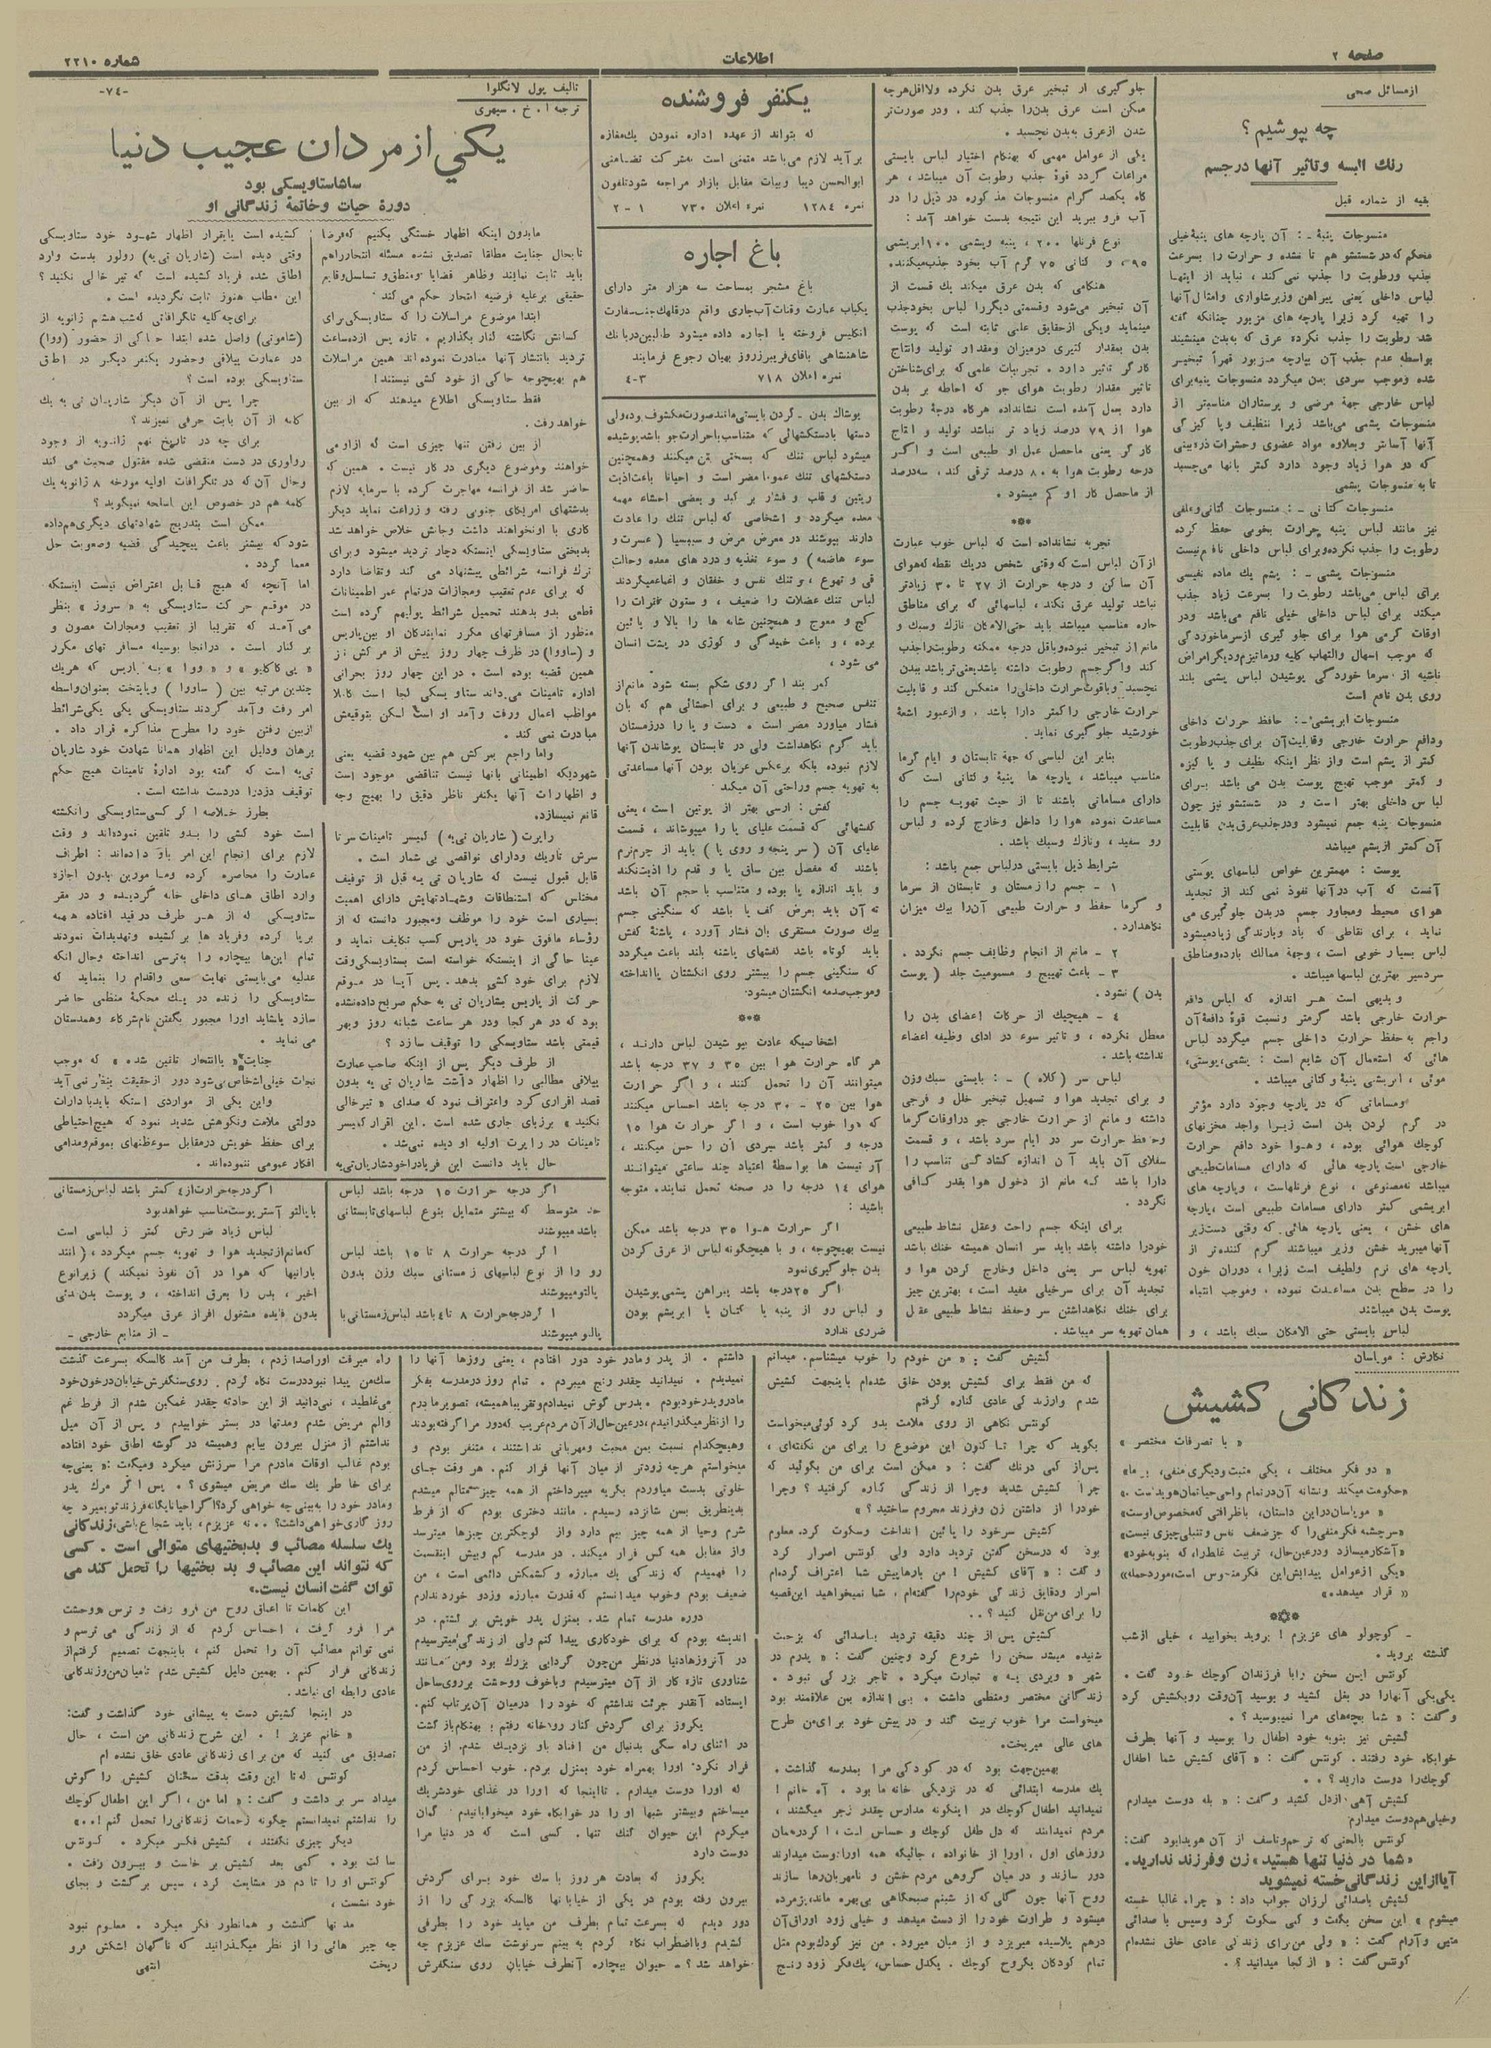 صفحه ۲
اطلاعات
شماره ۲۲۱۰
از مسائل صحی
چه بپوشیم؟
رنك البسه وتاثیر آنها درجسم
بقیه از شماره قبل
منسوجات پنبهٔ ـ: آن پارچه های پنبهٔ خیلی
محکم که در شستشو هم تا نشده و حرارت را بسرعت
جذب ورطوبت را جذب نمی کند، نباید از اینها
لباس داخلی یعنی پیراهن وزیرشلواری وامثال آنها
را تهیه کرد زیرا پارچه های مزبور چنانکه گفته
شد رطوبت را جذب نکرده عرق که به بدن مینشیند
بواسطه عدم جذب آن بپارچه مزبور قهراً تبخیر
شده وموجب سردی بدن میگردد منسوجات پنبه برای
لباس خارجی جهة مرضی و پرستاران مناسبتر از
منسوجات پشمی می‌باشد زیرا تنظیف وپا کیزگی
آنها آسانتر وبعلاوه مواد عضوی وحشرات ذره‌بینی
که در هوا زیاد وجود دارد کمتر بآنها می‌چسبد
تا به منسوجات پشمی
منسوجات کتانی ـ: منسوجات کتانی وعلفی
نیز مانند لباس پنبه حرارت بخوبی حفظ کرده
رطوبت را جذب نکرده وبرای لباس داخلی نافع نیست
منسوجات پشمی ـ: پشم یك ماده نفیسی
برای لباس می‌باشد رطوبت را بسرعت زیاد جذب
میکند برای لباس داخلی خیلی نافع می‌باشد ودر
اوقات گرمی هوا برای جلو گیری ازسرماخوردگی
که موجب اسهال والتهاب کلیه ورماتیزم ودیگرامراض
ناشیه از سرما خوردگی پوشیدن لباس پشمی بلند
روی بدن نافع است
منسوجات ابریشمی ـ: حافظ حررات داخلی
ودافع حرارت خارجی وقابلیت آن برای جذب رطوبت
کمتر از پشم است واز نظر اینکه نظیف و پا کیزه
و کمتر موجب تهیج پوست بدن می باشد برای
لباس داخلی بهتر است و در شستشو نیز چون
منسوجات پنبه جمع نمیشود ودرجذب عرق بدن قابلیت
آن کمتر ازپشم میباشد
پوست : مهمترین خواص لباسهای پوستی
آنست که آب در آنها نفوذ نمی کند از تجدید
هوای محیط ومجاور جسم دربدن جلو گیری می
نماید ، برای نقاطی که باد وبارندگی زیاد میشود
لباس بسیار خوبی است ، وجهة ممالك بارده ومناطق
سردسیر بهترین لباسها میباشد .
و بدیهی است هر اندازه که لباس دافع
حرارت خارجی باشد گرمتر ونسبت قوهٔ دافعهٔ آن
راجع به حفظ حرارت داخلی جسم میگردد لباس
هائی که استعمال آن شایع است : پشمی، پوستی،
موئی ، ابریشمی پنبهٔ و کتانی میباشد .
ومساماتی که در پارچه وجود دارد مؤثر
در گرم کردن بدن است زیرا واجد مخزنهای
کوچك هوائی بوده ، وهوا خود دافع حرارت
خارجی است پارچه هائی که دارای مسامات طبیعی
میباشد نه مصنوعی ، نوع فرنلهاست ، وپارچه های
ابریشمی کمتر دارای مسامات طبیعی است ، پارچه
های خشن ، یعنی پارچه هائی که وقتی دست زیر
آنها میبرید خشن وزبر میباشند گرم کننده تر از
پارچه های نرم ولطیف است زیرا ، دوران خون
را در سطح بدن مساعدت نموده ، وموجب انتباه
پوست بدن میباشند
لباس بایستی حتی الامکان سبك باشد ، و
جلو گیری از تبخیر عرق بدن نکرده ولااقل هرچه
ممکن است عرق بدن را جذب کند . ودر صورت تر
شدن ازعرق به‌بدن نچسبد .
یکی از عوامل مهمی که بهنگام اختیار لباس بایستی
مراعات گردد قوهٔ جذب رطوبت آن میباشد ، هر
گاه یکصد گرام منسوجات مذکوره در ذیل را در
آب فرو ببرید این نتیجه بدست خواهد آمد :
نوع فرنلها ۲۰۰ ، پنبه وپشمی ۱۰۰ ابریشمی
۹۵ ، و کتانی ۷۵ گرم آب بخود جذب میکنند.
هنگامی که بدن عرق میکند یك قسمت از
آن تبخیر می شود وقسمتی دیگررا لباس بخودجذب
مینماید ویکی ازحقایق علمی ثابته است که پوست
بدن بمقدار کثیری درمیزان ومقدار تولید وانتاج
کارگر تاثیر دارد . تجربیات علمی که برای شناختن
تاثیر مقدار رطوبت هوای جو که احاطه بر بدن
دارد بعمل آمده است نشانداده هرگاه درجهٔ رطوبت
هوا از ۷۹ درصد زیاد تر نباشد تولید و انتاج
کارگر یعنی ماحصل عمل او طبیعی است و اگر
درجه رطوبت هوا به ۸۰ درصد ترقی کند ، سه‌درصد
از ماحصل کار او کم میشود .
***
تجربه نشانداده است که لباس خوب عبارت
ازآن لباس است که وقتی شخص دریك نقطه که هوای
آن ساکن و درجه حرارت از ۲۷ تا ۳۰ زیادتر
نباشد تولید عرق نکند ، لباسهائی که برای مناطق
حاره مناسب میباشد باید حتی‌الامکان نازك وسبك و
مانع از تبخیر نبوده وباقل درجه ممکنه رطوبت راجذب
کند واگرجسم رطوبت داشته باشدیعنی ترباشد ببدن
نچسبد وباقوت حرارت داخلی را منعکس کند و قابلیت
حرارت خارجی را کمتر دارا باشد . وازعبور اشعهٔ
خورشید جلو گیری نماید.
بنابر این لباسی که جهة تابستان و ایام گرما
مناسب میباشد ، پارچه ها پنبهٔ و کتانی است که
دارای مساماتی باشند تا از حیث تهویه جسم را
مساعدت نموده هوا را داخل وخارج کرده و لباس
رو سفید ، ونازك وسبك باشد .
شرایط ذیل بایستی درلباس جمع باشد :
۱ ـ جسم را زمستان و تابستان از سرما
و گرما حفظ و حرارت طبیعی آن‌را بیك میزان
نگاهدارد .
۲ ـ مانع از انجام وظایف جسم نگردد .
۳ ـ باعث تهییج و مسمومیت جلد ( پوست
بدن ) نشود .
٤ ـ هیچیك از حرکات اعضای بدن را
معطل نکرده ، و تاثیر سوء در ادای وظیفه اعضاء
نداشته باشد .
لباس سر (کلاه) ـ: بایستی سبك وزن
و برای تجدید هوا و تسهیل تبخیر خلل و فرجی
داشته و مانع از حرارت خارجی جو دراوقات گرما
وحفظ حرارت سر در ایام سرد باشد ، و قسمت
سفلای آن باید آن اندازه کشادگی تناسب را
دارا باشد که مانع از دخول هوا بقدر کافی
نگردد .
برای اینکه جسم راحت وعقل نشاط طبیعی
خودرا داشته باشد باید سر انسان همیشه خنك باشد
تهویه لباس سر یعنی داخل وخارج کردن هوا و
تجدید آن برای سرخیلی مفید است ، بهترین چیز
برای خنك نگاهداشتن سر وحفظ نشاط طبیعی عقل
همان تهویه سر میباشد .
یکنفر فروشنده
که بتواند از عهده اداره نمودن یك مغازه
برآید لازم می‌باشد متمنی است بشرکت تضامنی
ابوالحسن دیبا وبیات مقابل بازار مراجعه شود تلفون
نمره ۱۲۸٤ نمره اعلان ۷۳۰ ۱ـ۲
باغ اجاره
باغ مشجر بمساحت سه هزار متر دارای
یکباب عمارت وقنات آب جاری واقع درقلهك جنب سفارت
انگلیس فروخته یا اجاره داده میشود طالبین دربانك
شاهنشاهی بآقای فریبرزروز بهیان رجوع فرمایند
نمره اعلان ۷۱۸ ۳ـ٤
پوشاك بدن ـ گردن بایستی مانند صورت مکشوف بوده ولی
دستها بادستکشهائی که متناسب باحرارت جو باشد پوشیده
میشود لباس تنك که بسختی تن میکنند وهمچنین
دستکشهای تنك عموماً مضر است و احیاناً باعث اذیت
ریتین و قلب و فشار بر کبد و بعضی احشاء مهمه
معده میگردد و اشخاصی که لباس تنك را عادت
دارند بپوشند در معرض مرض و سپسیا ( عسرت و
سوء هاضمه ) و سوء تغذیه و درد های معده وحالت
قی و تهوع ، و تنك نفس و خفقان و اغماءمیگردند
لباس تنك عضلات را ضعیف ، و ستون فقرات را
کج و معوج و همچنین شانه ها را بالا و پائین
برده ، و باعث خمیدگی و کوژی در پشت انسان
می شود ،
کمر بند اگر روی شکم بسته شود مانع از
تنفس صحیح و طبیعی و برای احشائی هم که بآن
فشار میاورد مضر است . دست و پا را درزمستان
باید گرم نگاهداشت ولی در تابستان پوشاندن آنها
لازم نبوده بلکه برعکس عریان بودن آنها مساعدتی
به تهویه جسم وراحتی آن میکند
کفش : ارسی بهتر از پوتین است ، یعنی
کفشهائی که قسمت علیای پا را میپوشاند ، قسمت
علیای آن ( سر پنجه و روی پا ) باید از چرم نرم
باشد که مفصل بین ساق پا و قدم را اذیت نکند
و باید اندازه پا بوده و متناسب با حجم آن باشد
ته آن باید بعرض کف پا باشد که سنگینی جسم
بیك صورت مستقری بآن فشار آورد ، پاشنهٔ کفش
باید کوتاه باشد کفشهای پاشنه بلند باعث میگردد
که سنگینی جسم را بیشتر روی انگشتان پاانداخته
وموجب صدمه انگشتان میشود.
***
اشخاصیکه عادت بپو شیدن لباس دارند ،
هر گاه حرارت هوا بین ۳۵ و ۳۷ درجه باشد
میتوانند آن را تحمل کنند ، و اگر حرارت
هوا بین ۲۵ ـ ۳۰ درجه باشد احساس میکنند
که هوا خوب است ، و اگر حرارت هوا ۱۵
درجه و کمتر باشد سردی آن را حس میکنند ،
آرتیست ها بواسطهٔ اعتیاد چند ساعتی میتوانند
هوای ۱٤ درجه را در صحنه تحمل نمایند. متوجه
باشید :
اگر حرارت هوا ۳۵ درجه باشد ممکن
نیست بهیچوجه ، و با هیچگونه لباس از عرق کردن
بدن جلو گیری نمود
اگر ۲۵درجه باشد پیراهن پشمی پوشیدن
و لباس رو از پنبه یا کتان یا ابریشم بودن
ضرری ندارد
اگر درجه حرارت ۱۵ درجه باشد لباس
حد متوسط که بیشتر متمایل بنوع لباسهای تابستانی
باشد میپوشند
اگر درجه حرارت ۸ تا ۱۵ باشد لباس
رو را از نوع لباسهای زمستانی سبك وزن بدون
پالتو میپوشند
اگردرجه حرارت ۸ تا٤ باشد لباس زمستانی با
پالتو میپوشند
اگر درجه حرارت از٤ کمتر باشد لباس زمستانی
باپالتو آستر پوست مناسب خواهد بود
لباس زیاد ضررش کمتر ز لباسی است
که مانع ازتجدید هوا و تهویه جسم میگردد ، ( مانند
بارانیها که هوا در آن نفوذ نمیکند ) زیرانوع
اخیر ، بدن را بعرق انداخته ، و پوست بدن مدتی
بدون فایده مشغول افراز عرق میگردد
ـ از منابع خارجی ـ
تالیف پول لانگلوا
ترجمه ا . خ . سپهری
ـ۷٤ـ
یکی از مردان عجیب دنیا
ساشاستاویسکی بود
دورهٔ حیات وخاتمهٔ زندگانی او
مابدون اینکه اظهار خستگی بکنیم که فرضاً
تابحال جنایت مطلقا تصدیق نشده مسئله انتحار راهم
باید ثابت نمایند وظاهر قضایا ومنطق و تسلسل وقایع
حقیقی برعلیه فرضیه انتحار حکم می کند
ابتدا موضوع مراسلات را که ستاویسکی برای
کسانش نگاشته کنار بگذاریم . تازه پس ازده ساعت
تردید بانتشار آنها مبادرت نموده‌اند همین مراسلات
هم بهیچوجه حاکی از خود کشی نیستند!
فقط ستاویسکی اطلاع میدهند که از بین
خواهد رفت .
از بین رفتن تنها چیزی است که ازاو می
خواهند وموضوع دیگری در کار نیست . همین که
حاضر شد از فرانسه مهاجرت کرده با سرمایه لازم
بدشتهای امریکای جنوبی رفته و زراعت نماید دیگر
کاری با اونخواهند داشت وجانش خلاص خواهد شد
بدبختی ستاویسکی اینستکه دچار تردید میشود وبرای
ترك فرانسه شرائطی پیشنهاد می کند وتقاضا دارد
که برای عدم تعقیب ومجازات درتمام عمر اطمینانات
قطعی بدو بدهند تحمیل شرائط پولیهم کرده است
منظور از مسافرتهای مکرر نمایندگان او بین پاریس
و (ساووا) در ظرف چهار روز پیش از مرگش نیز
همین قضیه بوده است . در این چهار روز بحرانی
اداره تامینات می‌داند ستاویسکی کجا است کاملا
مواظب اعمال ورفت و آمد او است لکن بتوقیفش
مبادرت نمی کند .
واما راجع بمرگش هم بین شهود قضیه یعنی
شهودیکه اطمینانی بآنها نیست تناقضی موجود است
و اظهارات آنها یکنفر ناظر دقیق را بهیچ وجه
قانع نمیسازد،
راپرت ( شارپان تی‌یه ) کمیسر تامینات سرتا
سرش تاریك ودارای نواقصی بی شمار است .
قابل قبول نیست که شارپان تی‌یه قبل از توقیف
مختلس که استنطاقات وشهادتهایش دارای اهمیت
بسیاری است خود را موظف ومجبور دانسته که از
رؤساء مافوق خود در پاریس کسب تکلیف نماید و
عیناً حاکی از اینستکه خواسته است بستاویسکی وقت
لازم برای خود کشی بدهد. پس آیا در موقع
حرکت از پاریس بشارپان تی‌یه حکم صریح داده نشده
بود که در هر کجا ودر هر ساعت شبانه روز وبهر
قیمتی باشد ستاویسکی را توقیف سازد ؟
از طرف دیگر پس از اینکه صاحب عمارت
ییلاقی مطالبی را اظهار داشت شارپان تی‌یه بدون
قصد اقراری کرد واعتراف نمود که صدای « تیرخالی
نکنید » برزبای جاری شده است . این اقرار کمیسر
تامینات در راپرت اولیه او دیده نمی‌شد .
حال باید دانست این فریاد را خودشارپان تی‌یه
کشیده است یابقرار اظهار شهود خود ستاویسکی
وقتی دیده است (شارپان تی‌یه) رولور بدست وارد
اطاق شده فریاد کشیده است که تیر خالی نکنید ؟
این مطلب هنوز ثابت نگردیده است .
برای چه کلیه تلگرافاتی که شب هشتم ژانویه از
(شامونی) واصل شده ابتدا حاکی از حضور (ووا)
در عمارت ییلاقی وحضور یکنفر دیگر در اطاق
ستاویسکی بوده است ؟
چرا پس از آن دیگر شارپان تی‌یه به یك
کلمه از آن بابت حرفی نمیزند ؟
برای چه در تاریخ نهم ژانویه از وجود
رولوری در دست منقضی شده مقتول صحبت می کند
وحال آن که در تلگرافات اولیه مورخه ۸ ژانویه یك
کلمه هم در خصوص این اسلحه نمیگوید ؟
ممکن است بتدریج شهادتهای دیگری هم داده
شود که بیشتر باعث پیچیدگی قضیه وصعوبت حل
معما گردد .
اما آنچه که هیچ قابل اعتراض نیست اینستکه
در موقع حرکت ستاویسکی به « سروز » بنظر
می‌آمد که تقریبا از تعقیب ومجازات مصون و
بر کنار است . درآنجا بوسیله مسافر تهای مکرر
« پی کاکایو » و « ووا » به پاریس که هریك
چندین مرتبه بین ( ساووا ) وپایتخت بعنوان واسطه
امر رفت و آمد کردند ستاویسکی یکی یکی شرائط
ازبین رفتن خود را مطرح مذاکره قرار داد .
برهان ودلیل این اظهار همانا شهادت خود شارپان
تی‌یه است که گفته بود ادارهٔ تامینات هیچ حکم
توقیف دزدرا دردست نداشته است .
بطرز خلاصه اگر کسی ستاویسکی را نکشته
است خود کشی را بدو تلقین نموده‌اند و وقت
لازم برای انجام این امر باو داده‌اند : اطراف
عمارت را محاصره کرده ومامورین بدون اجازه
وارد اطاق های داخلی خانه گردیده و در مقر
ستاویسکی که از هر طرف درقید افتاده همهمه
برپا کرده وفریاد ها برکشیده وتهدیدات نمودند
تمام این‌ها بیچاره را بترسی انداخته وحال آنکه
عدلیه می‌بایستی نهایت سعی واقدام را بنماید که
ستاویسکی را زنده در یك محکمهٔ منظمی حاضر
سازد یاشاید اورا مجبور بگفتن نام شرکاء وهمدستان
می نماید .
جنایت « یاانتحار تلقین شده » که موجب
نجات خیلی اشخاص می‌شود دور از حقیقت بنظر نمی‌آید
واین یکی از مواردی استکه باید بادارات
دولتی ملامت ونکوهش شدید نمود که هیچ احتیاطی
برای حفظ خویش درمقابل سوءظنهای بموقع ومدامی
افکار عمومی ننموده‌اند .
نگارش : موپاسان
زندگانی کشیش
« با تصرفات مختصر »
« دو فکر مختلف ، یکی مثبت ودیگری منفی، بر ما»
«حکومت میکند ونشانه آن درتمام نواحی حیاتمان هویداست .»
« موپاسان دراین داستان، باظرافتی که مخصوص اوست»
«سرچشمه فکرمنفی‌را که جز ضعف نفس و تنبلی چیزی نیست»
«آشکار میسازد ودرعین حال، تربیت غلط‌را، که بنوبه خود»
«یکی ازعوامل پیدایش این فکرمنحوس است، مورد حمله»
« قرار میدهد.»
***
ـ کوچولو های عزیزم ! بروید بخوابید ، خیلی ازشب
گذشته بروید .
کونتس این سخن رابا فرزندان کوچك خود گفت .
یکی‌یکی آنهارا در بغل کشید و بوسید آن‌وقت روبکشیش کرد
وگفت : « شما بچه‌های مرا نمیبوسید ؟ .
کشیش نیز بنوبه خود اطفال را بوسید و آنها بطرف
خوابگاه خود رفتند . کونتس گفت : « آقای کشیش شما اطفال
کوچك‌را دوست دارید ؟ . .
کشیش آهی ازدل کشید وگفت : « بله دوست میدارم
وخیلی هم دوست میدارم
کونتس بالحنی که ترحم وتاسف از آن هویدابود گفت:
«شما در دنیا تنها هستید » زن وفرزند ندارید .
آیاازاین زندگانی خسته نمیشوید
کشیش باصدائی لرزان جواب داد : « چرا، غالباً خسته
میشوم » این سخن بگفت و کمی سکوت کرد وسپس با صدائی
متین وآرام گفت : « ولی من برای زندگی عادی خلق نشده‌ام
کونتس گفت : « از کجا میدانید ؟ .
کشیش گفت : « من خودم را خوب میشناسم. میدانم
که من فقط برای کشیش بودن خلق شده‌ام باینجهت کشیش
شدم وازندگی عادی کناره گرفتم
کونتس نگاهی از روی ملامت بدو کرد گوئی میخواست
بگوید که چرا تا کنون این موضوع را برای من نگفته‌ای ،
پس از کمی درنك گفت : « ممکن است برای من بگوئید که
چرا کشیش شدید وچرا از زندگی کناره گرفتید ؟ وچرا
خودرا از داشتن زن وفرزند محروم ساختید ؟ »
کشیش سرخود را پائین انداخت وسکوت کرد. معلوم
بود که درسخن گفتن تردید دارد ولی کونتس اصرار کرد
وگفت : « آقای کشیش ! من بارهاپیش شما اعتراف کرده‌ام
اسرار ودقایق زندگی خودم‌را گفته‌ام ، شما نمیخواهید این قصه
را برای من نقل کنید ؟ . .
کشیش پس از چند دقیقه تردید باصدائی که بزحمت
شنیده میشد سخن را شروع کرد وچنین گفت : « پدرم در
شهر « وپردی یه » تجارت میکرد . تاجر بزرگی نبود .
زندگانی مختصر ومنظمی داشت . بی‌اندازه بمن علاقمند بود
میخواست مرا خوب تربیت کند و در پیش خود برای من طرح
های عالی میریخت .
بهمین جهت بود که در کودکی مرا بمدرسه گذاشت .
یك مدرسه ابتدائی که در نزدیکی خانه ما بود . آه خانم !
نمیدانید اطفال کوچك در اینگونه مدارس چقدر زجر میکشند ،
مردم نمیدانند که دل طفل کوچك و حساس است ، اگر درهمان
روزهای اول ، اورا از خانواده ، جائیکه همه اورا دوست میدارند
دور سازند و در میان گروهی مردم خشن و نامهربان‌رها سازند
روح آنها چون گلی که از شبنم صبحگاهی بی‌بهره ماند، پژمرده
میشود و طراوت خود را از دست میدهد و خیلی زود اوراق آن
درهم پلاسیده میریزد و از میان میرود . من نیز کودك بودم مثل
تمام کودکان بگروح کوچك . یکدل حساس، یك فکر زود رنج
داشتم . از پدر ومادر خود دور افتادم ، یعنی روزها آنها را
نمیدیدم . نمیدانید چقدر رنج میبردم . تمام روز درمدرسه بفکر
مادروپدرخود بودم . بدرس گوش نمیدادم وتقریباً همیشه، تصویر مادرم
را از نظر میگذرانیدم ، درعین حال از آن مردم غریب که دور مرا گرفته بودند
وهیچکدام نسبت بمن محبت ومهربانی نداشتند ، متنفر بودم و
میخواستم هرچه زودتر از میان آنها فرار کنم. هر وقت جای
خلوتی بدست میاوردم بگریه میپرداختم از همه چیز متالم میشدم
بدینطریق بسن شانزده رسیدم. مانند دختری بودم که از فرط
شرم وحیا از همه چیز بیم دارد واز کوچکترین چیزها میترسد
واز مقابل همه کس فرار میکند . در مدرسه کم وبیش اینقسمت
را فهمیدم که زندگی یك مبارزه و کشمکش دائمی است ، من
ضعیف بودم وخوب میدانستم که قدرت مبارزه وزدو خورد ندارم
دوره مدرسه تمام شد. بمنزل پدر خویش بر گشتم. در
اندیشه بودم که برای خود کاری پیدا کنم ولی از زندگی میترسیدم
در آنروزهادنیا درنظر من چون گردابی بزرك بود ومن مانند
شناوری تازه کار از آن میترسیدم وباخوف ووحشت برروی ساحل
ایستاده آنقدر جرئت نداشتم که خود را درمیان آن پرتاب کنم.
یکروز برای گردش کنار رودخانه رفتم ، بهنگام باز گشت
در اثنای راه سگی بدنبال من افتاد باو نزدیك شدم. از من
فرار نکرد. اورا بهمراه خود بمنزل بردم. خوب احساس کردم
که اورا دوست میدارم . تااینجا که اورا در غذای خودشریك
میساختم وبیشتر شبها او را در خوابگاه خود میخوابانیدم. گمان
میکردم این حیوان گنك تنها. کسی است که در دنیا مرا
دوست دارد
یکروز که بعادت هر روز با سك خود برای گردش
بیرون رفته بودم در یکی از خیابانها کالسکه بزرگی را از
دور دیدم که بسرعت تمام بطرف من میاید خود را بطرفی
کشیدم وبااضطراب نگاه کردم به بینم سرنوشت سك عزیزم چه
خواهد شد ؟ ـ حیوان بیچاره آنطرف خیابان روی سنگفرش
راه میرفت اوراصدا زدم ، بطرف من آمد کالسکه بسرعت گذشت
سك من پیدا نبود درست نگاه کردم . روی سنگفرش خیابان درخون خود
می‌غلطید ، نمی‌دانید از این حادثه چقدر غمگین شدم از فرط غم
والم مریض شدم ومدتها در بستر خوابیدم و پس از آن میل
نداشتم از منزل بیرون بیایم وهمیشه در گوشه اطاق خود افتاده
بودم غالب اوقات مادرم مرا سرزنش میکرد ومیگفت :« یعنی چه
برای خاطر یك سك مریض میشوی ؟ . پس اگر مرك پدر
ومادر خود را به‌بینی چه خواهی کرد؟ اگر احیاناً یگانه فرزند توبمیرد چه
روز گاری خواهی‌داشت؟ . . نه عزیزم ، باید شجاع باشی، زندگانی
یك سلسله مصائب و بدبختیهای متوالی است . کسی
که نتواند این مصائب و بد بختیها را تحمل کند می
توان گفت انسان نیست.»
این کلمات تا اعماق روح من فرو رفت و ترس ووحشت
مرا فرو گرفت ، احساس کردم که از زندگی می ترسم و
نمی توانم مصائب آن را تحمل کنم ، باینجهت تصمیم گرفتم‌از
زندگانی فرار کنم . بهمین دلیل کشیش شدم تامیان من وزندگانی
عادی رابطه ای نباشد.
در اینجا کشیش دست به پیشانی خود گذاشت و گفت:
« خانم عزیز ! . این شرح زندگانی من است ، حال
تصدیق می کنید که من برای زندگانی عادی خلق نشده ام
کونتس که تا این وقت بدقت سخنان کشیش را گوش
میداد سر بر داشت و گفت : « اما من ، اگر این اطفال کوچك
را نداشتم نمیدانستم چگونه زحمات زندگانی را تحمل کنم ! . . »
دیگر چیزی نگفتند ، کشیش فکر میکرد . کونتس
ساکت بود . کمی بعد کشیش بر خاست و بیرون رفت .
کونتس او را تا دم در مشایعت کرد ، سپس برگشت و بجای
خود نشست ،
مدتها گذشت و همانطور فکر میکرد . معلوم نبود
چه چیز هائی را از نظر میگذرانید که ناگهان اشکش فرو
ریخت
انتهی